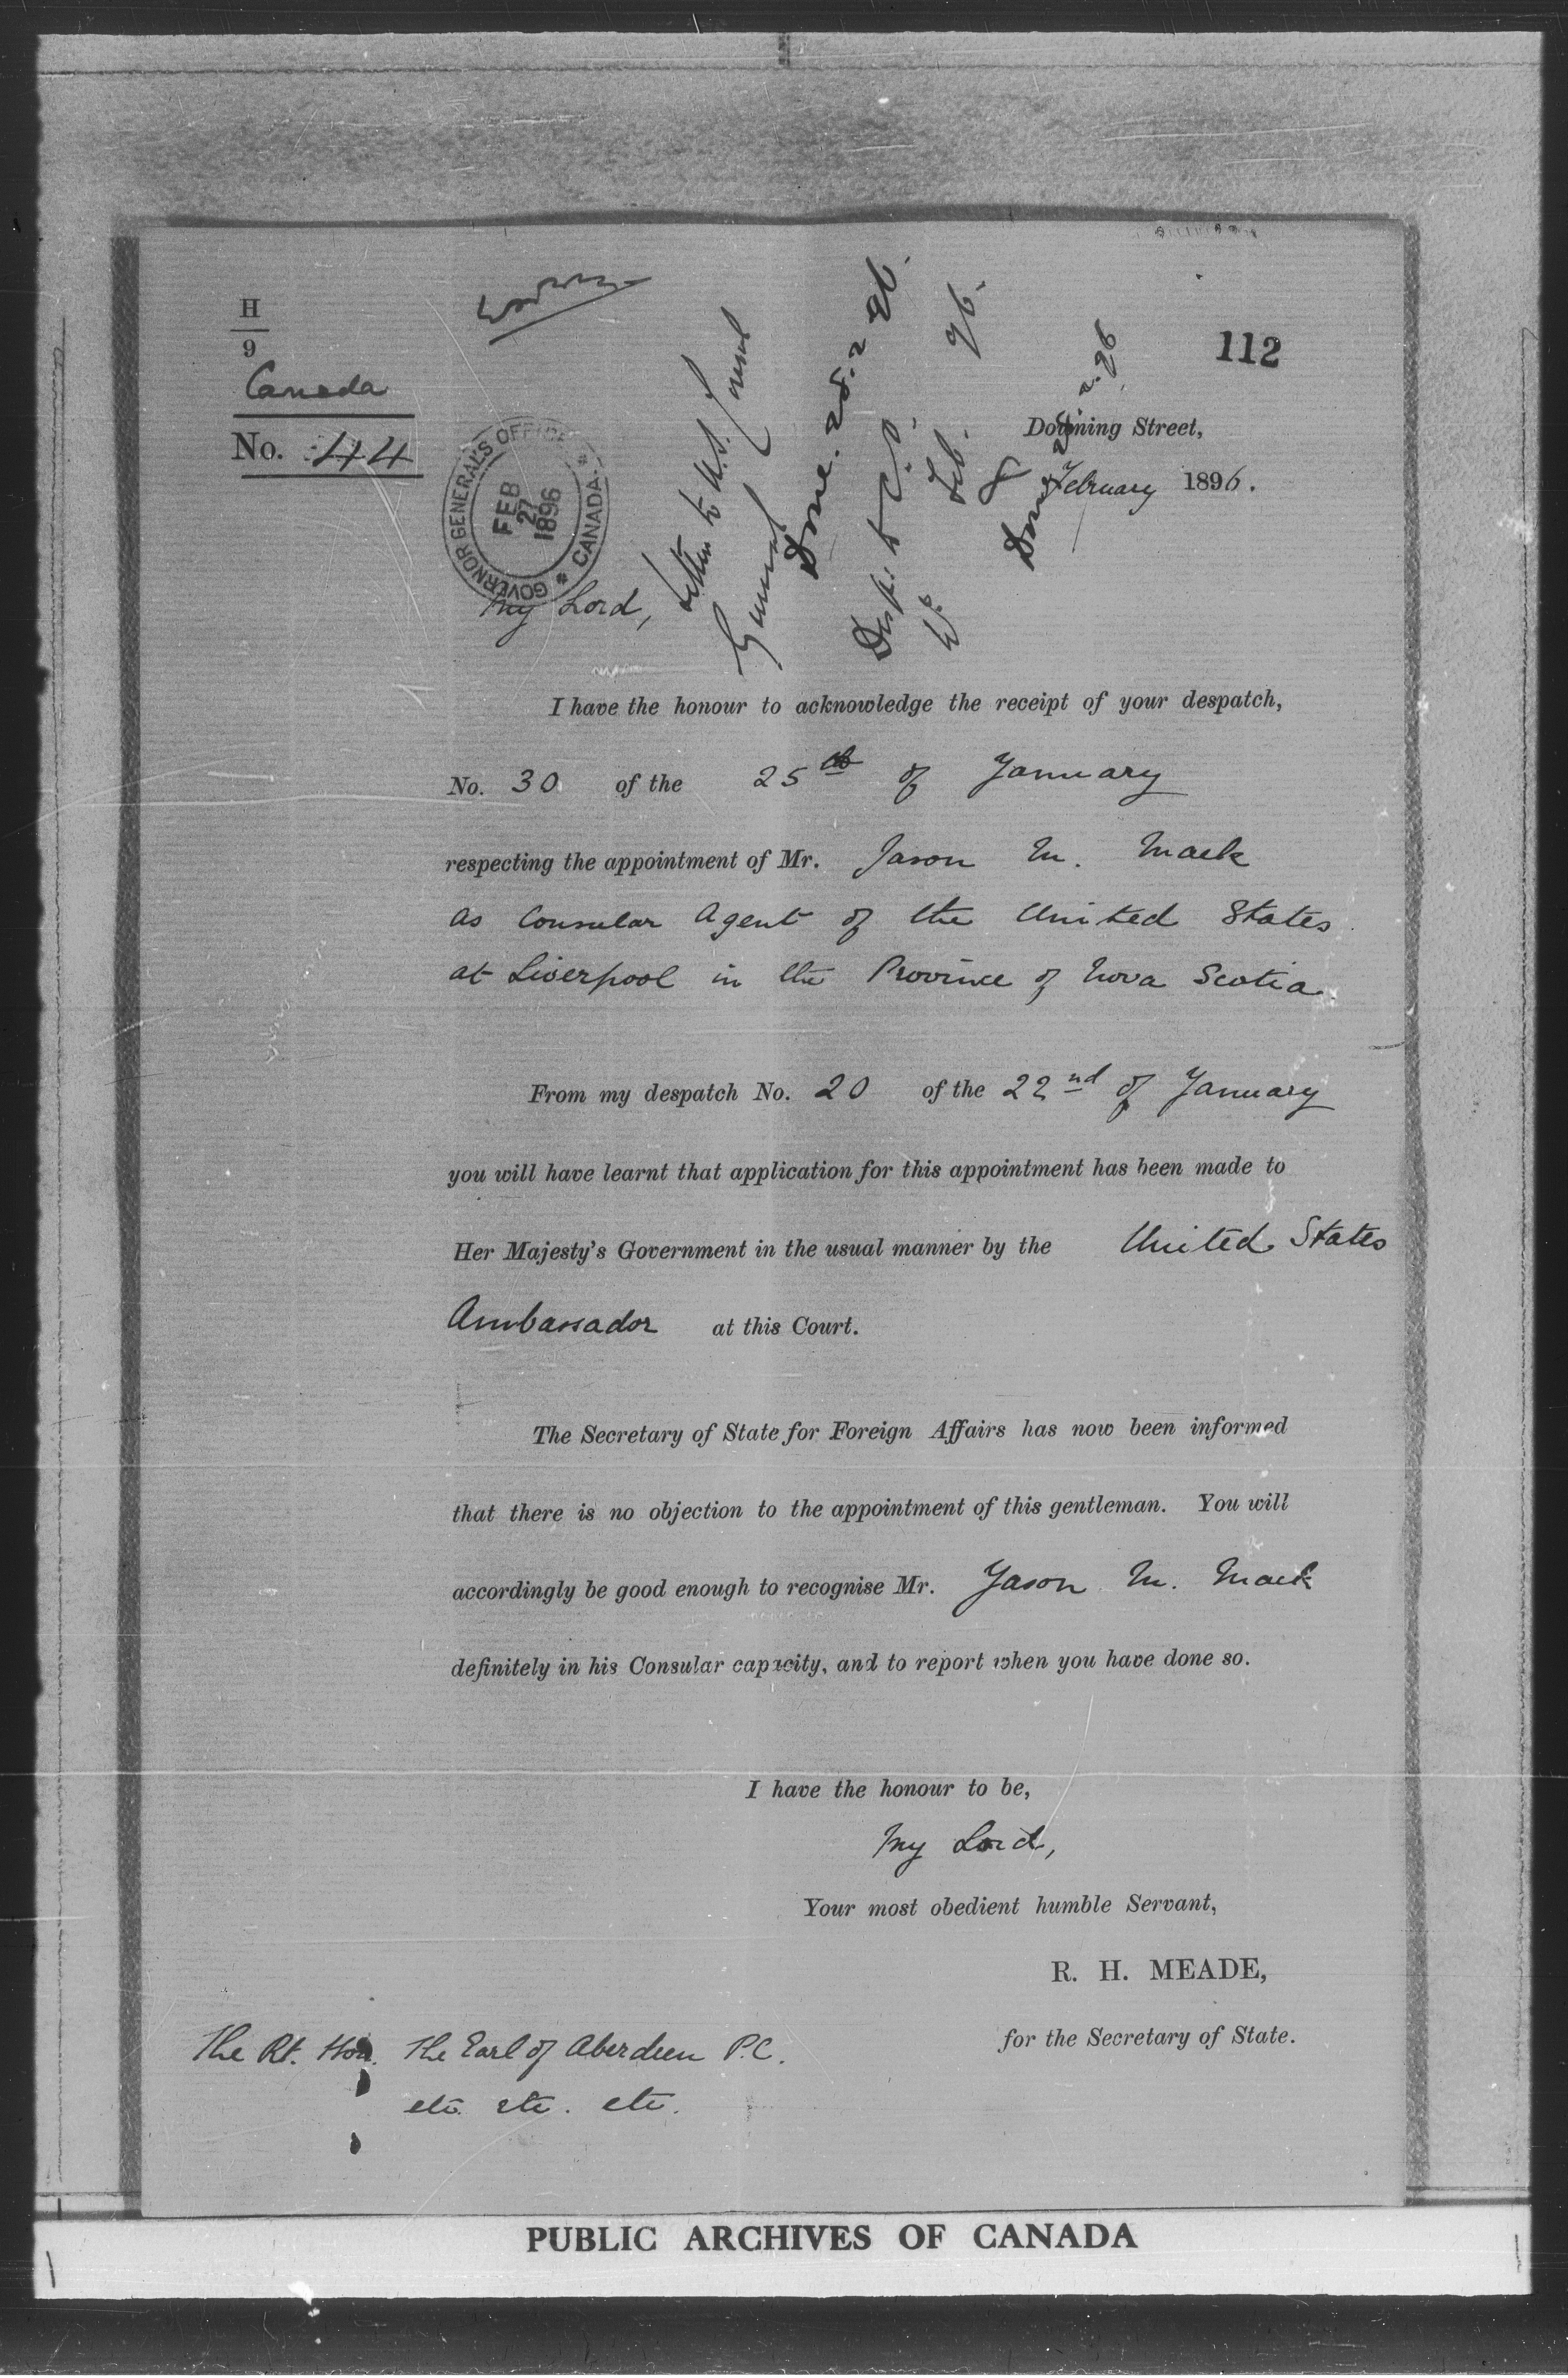 H
9
Canada
No. 44
112
GOVERNOR GENERAL'S OFFICE
CANADA
FEB
27
1896
Letter to U.S. Consul
General
Done. 28.2.96.
Desp. to C.O.
Feb. 96.
Downing Street,
8 February 1896.
My Lord,
I have the honour to acknowledge the receipt of your despatch,
No. 30 of the 25th of January
respecting the appointment of Mr. Jason M. Mack
as Consular Agent of the United States
at Liverpool in the Province of Nova Scotia.
From my despatch No. 20 of the 22nd of January
you will have learnt that application for this appointment has been made to
Her Majesty's Government in the usual manner by the United States
Ambassador at this Court.
The Secretary of State for Foreign Affairs has now been informed
that there is no objection to the appointment of this gentleman. You will
accordingly be good enough to recognise Mr. Jason M. Mack
definitely in his Consular capacity, and to report when you have done so.
I have the honour to be,
My Lord,
Your most obedient humble Servant,
R. H. MEADE,
for the Secretary of State.
The Rt. Hon. The Earl of Aberdeen P.C.
etc. etc. etc.
PUBLIC ARCHIVES OF CANADA